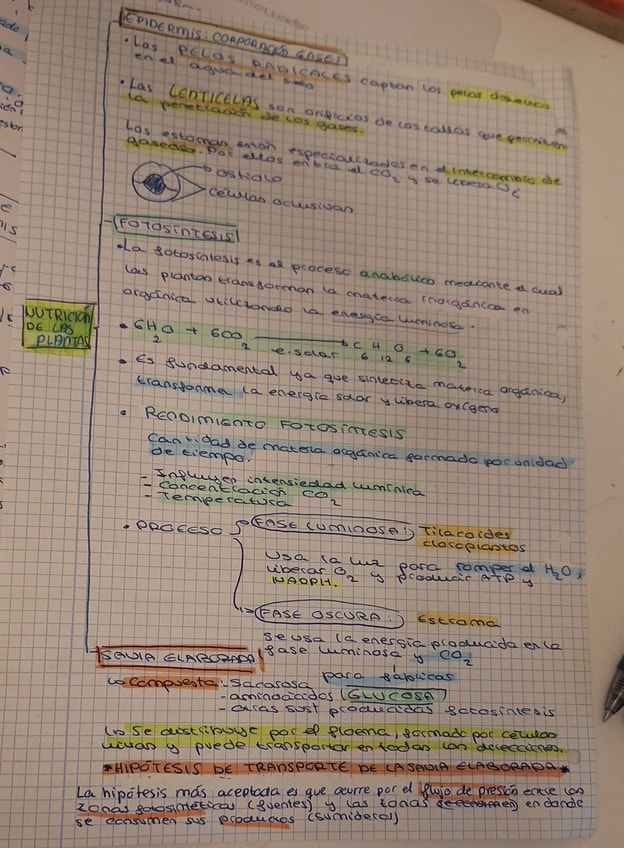 EPIDERMIS: CORPORACIÓN GASES
• Los PELOS RADICALES captan los
en el agua del
• Las LENTICELAS son orificios de los tallos que permiten
la penetración de los gases.
Los estomas están especializados en el intercambio de
gases. Por ellos entra el CO2 y se libera O2
ostiolo
células oclusivas
FOTOSÍNTESIS
• La fotosíntesis es el proceso anabólico mediante el cual
las plantas transforman la materia inorgánica en
orgánica utilizando la energía luminosa.
NUTRICIÓN
DE LAS
PLANTAS
• 6H2O + 6CO2 → C6H12O6 + 6O2
e. solar
• Es fundamental ya que sintetiza materia orgánica,
transforma la energía solar y libera oxígeno
• RENDIMIENTO FOTOSÍNTESIS
Cantidad de materia orgánica formada por unidad
de tiempo.
- Influyen intensiedad lumínica
- Concentración CO2
- Temperatura
• PROCESO
FASE LUMINOSA: Tilacoides
cloroplastos
Usa la luz para romper el H2O,
liberar O2 y producir ATP y
NADPH.
FASE OSCURA: Estroma
Se usa la energía producida en la
fase luminosa y CO2
para fabricar
GLUCOSA
SAVIA ELABORADA
↳ Compuesta: - Sacarosa
- aminoácidos
- otras sust producidas fotosíntesis
↳ Se distribuye por el floema, formado por células
vivas y puede transportar en todas las direcciones.
*HIPÓTESIS DE TRANSPORTE DE LA SAVIA ELABORADA*
La hipótesis más aceptada es que ocurre por el flujo de presión entre las
zonas fotosintéticas (fuentes) y las zonas en donde
se consumen sus productos (sumideros)